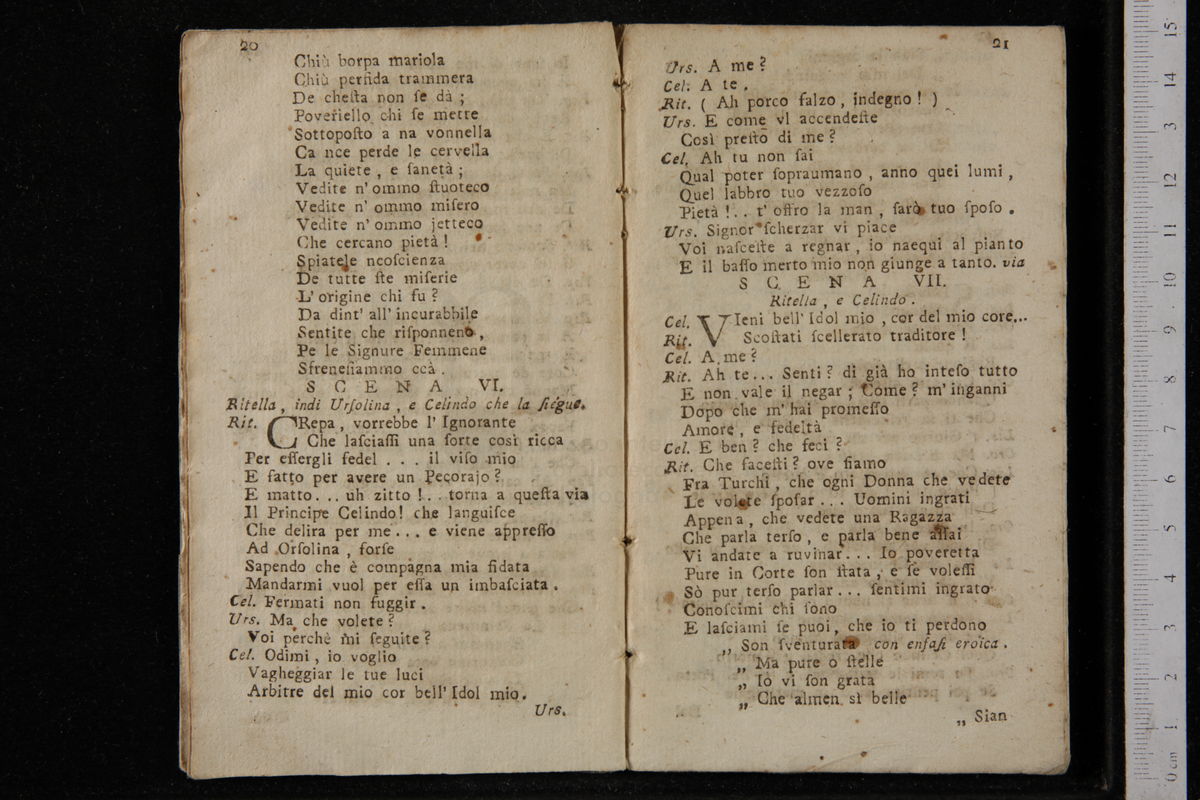 20
Chiù borpa mariola
Chiù perfida trammera
De cheſta non ſe dà ;
Poveriello chi ſe mette
Sottopoſto a na vonnella
Ca nce perde le cervella
La quiete , e ſanetà ;
Vedite n' ommo ſtuoteco
Vedite n' ommo miſero
Vedite n' ommo jetteco
Che cercano pietà !
Spiatele ncoſcienza
De tutte ſte miſerie
L' origine chi fu ?
Da dint' all' incurabbile
Sentite che riſponneno ,
Pe le Signure Femmene
Sfreneſiammo ccà .
S C E N A VI.
Ritella , indi Urſolina , e Celindo che la ſiégue.
Rit. CRepa , vorrebbe l' Ignorante
Che laſciaſſi una ſorte così ricca
Per eſſergli fedel . . . il viſo mio
E fatto per avere un Pecorajo ?
E matto. . . uh zitto ! . . torna a queſta via
Il Principe Celindo! che languiſce
Che delira per me . . . e viene appreſſo
Ad Orſolina , forſe
Sapendo che è compagna mia fidata
Mandarmi vuol per eſſa un imbaſciata .
Cel. Fermati non fuggir .
Urs. Ma che volete ?
Voi perchè mi ſeguite ?
Cel. Odimi , io voglio
Vagheggiar le tue luci
Arbitre del mio cor bell' Idol mio.
Urs.
21
Urs. A me ?
Cel. A te .
Rit. ( Ah porco falzo , indegno ! )
Urs. E come vi accendeſte
Così preſto di me ?
Cel. Ah tu non ſai
Qual poter ſopraumano , anno quei lumi ,
Quel labbro tuo vezzoſo
Pietà ! . . t' offro la man , ſarò tuo ſpoſo .
Urs. Signor ſcherzar vi piace
Voi naſceſte a regnar , io naequi al pianto
E il baſſo merto mio non giunge a tanto. via
S C E N A VII.
Ritella , e Celindo .
Cel. VIeni bell' Idol mio , cor del mio core...
Rit. Scoſtati ſcellerato traditore !
Cel. A me ?
Rit. Ah te... Senti ? di già ho inteſo tutto
E non vale il negar ; Come ? m' inganni
Dopo che m' hai promeſſo
Amore , e fedeltà
Cel. E ben ? che feci ?
Rit. Che faceſti ? ove ſiamo
Fra Turchi , che ogni Donna che vedete
Le volete ſpoſar . . . Uomini ingrati
Appena , che vedete una Ragazza
Che parla terſo , e parla bene aſſai
Vi andate a ruvinar. . . Io poveretta
Pure in Corte ſon ſtata , e ſe voleſſi
Sò pur terſo parlar . . . ſentimi ingrato
Conoſcimi chi ſono
E laſciami ſe puoi, che io ti perdono
,, Son ſventurata con enfaſi eroica .
,, Ma pure o ſtelle
,, Io vi ſon grata
,, Che almen sì belle
,, Sian
15
14
3
12
11
10
9
8
7
6
5
4
3
2
1
0 cm